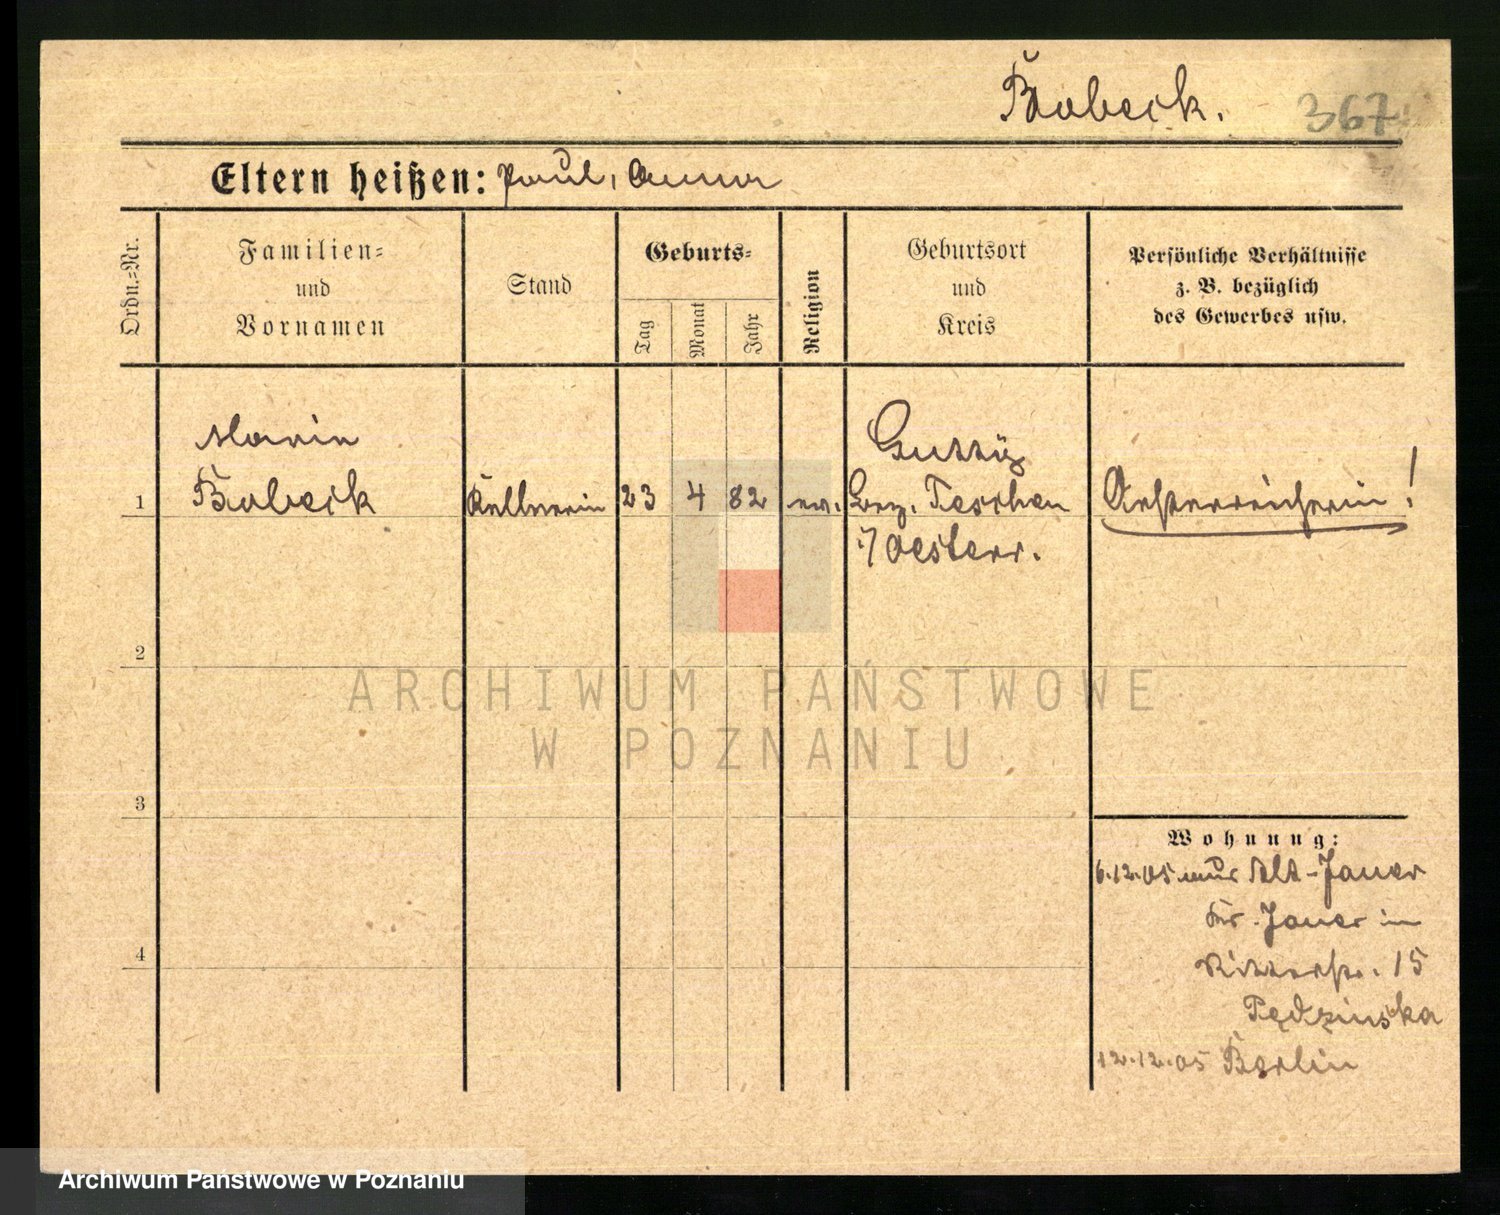 Bobeck.
367
Eltern heißen: Paul, Anna
Ordn.-Nr.
Familien-
und
Vornamen
Stand
Geburts-
Tag
Monat
Jahr
Religion
Geburtsort
und
Kreis
Persönliche Verhältnisse
z. B. bezüglich
des Gewerbes usw.
1
Maria
Bobeck
Kellnerin
23
4
82
ev.
Guttÿ
Bez. Teschen
i/Oesterr.
Oesterreicherin!
2
ARCHIWUM PAŃSTWOWE
W POZNANIU
3
Wohnung:
6.12.05 aus Alt-Jauer
Kr. Jauer in
Ritterstr. 15
Pędzinska
4
12.12.05 Berlin
Archiwum Państwowe w Poznaniu